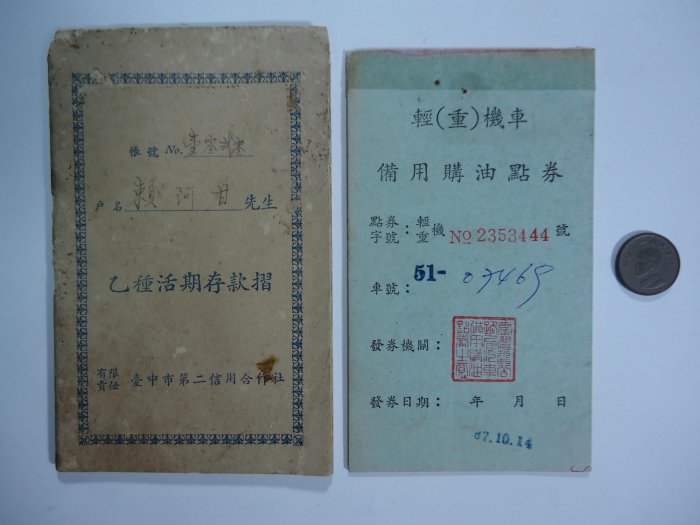 帳號 No. 壹零貳零
戶名 賴阿甘 先生
乙種活期存款摺
有限責任 臺中市第二信用合作社
輕(重)機車
備用購油點券
點券字號:輕重機 No 2353444 號
車號: 51-03469
發券機關:
發券日期: 年 月 日
67.10.14